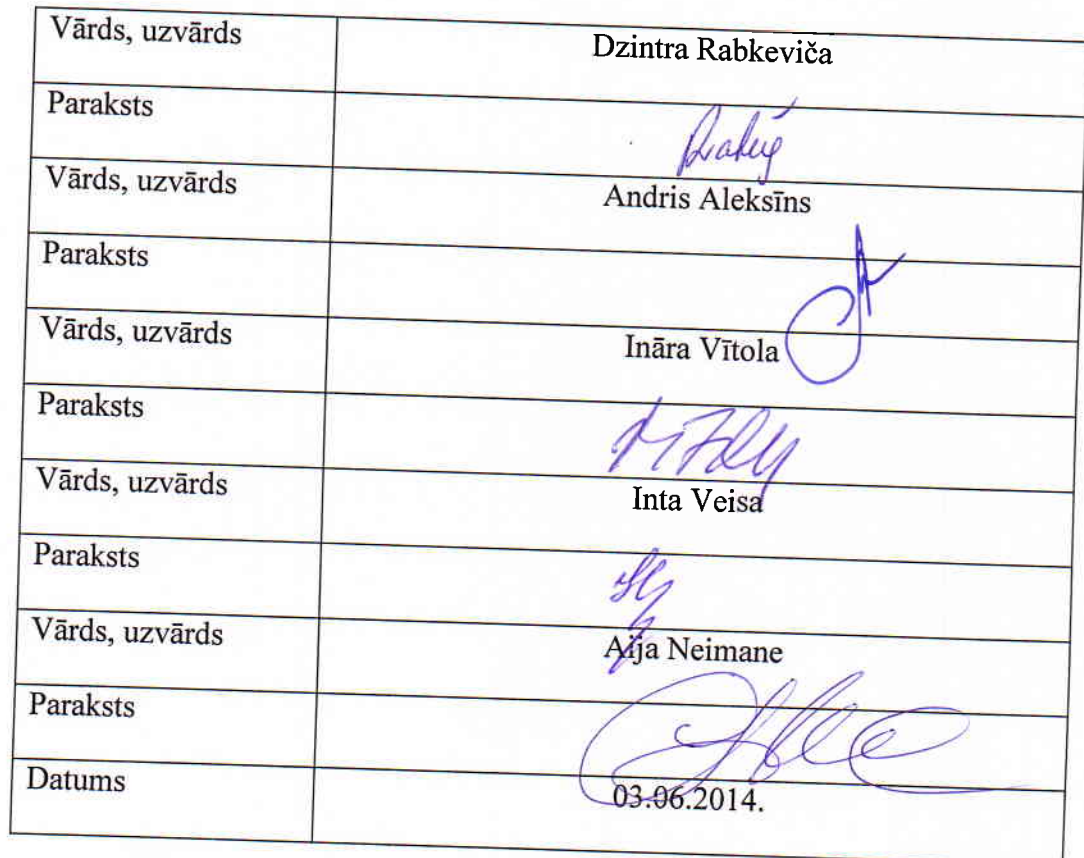 Vārds, uzvārds Dzintra Rabkeviča
Paraksts
Vārds, uzvārds Andris Aleksīns
Paraksts
Vārds, uzvārds Ināra Vītola
Paraksts
Vārds, uzvārds Inta Veisa
Paraksts
Vārds, uzvārds Aija Neimane
Paraksts
Datums 03.06.2014.